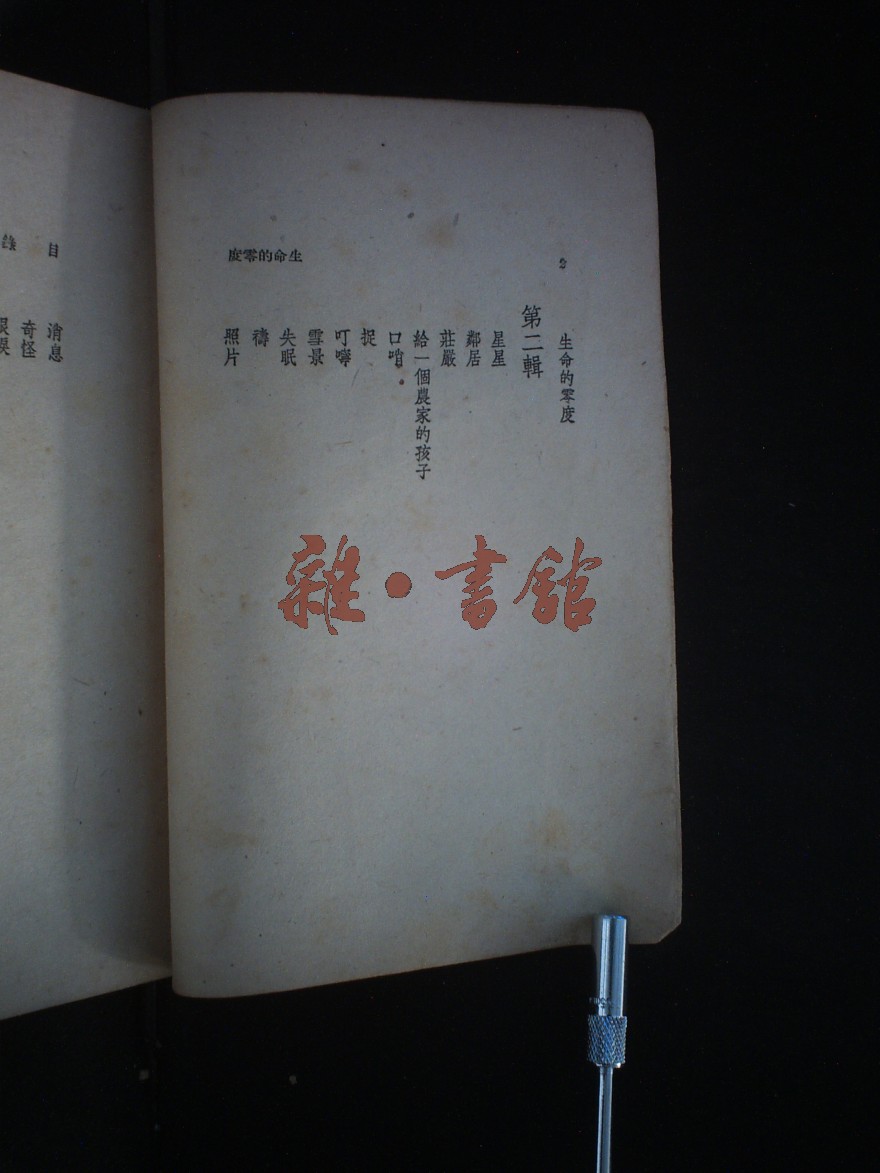 生命的零度
2
生命的零度
第二輯
星星
鄰居
莊嚴
給一個農家的孩子
口哨
捉
叮嚀
雪景
失眠
禱
照片
目錄
消息
奇怪
雜·書館